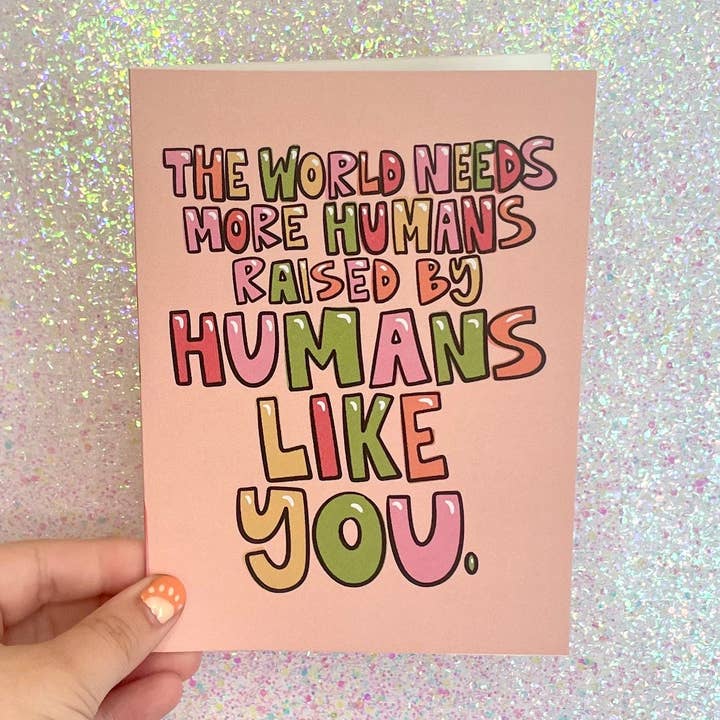 THE WORLD NEEDS
MORE HUMANS
RAISED BY
HUMANS
LIKE
YOU.